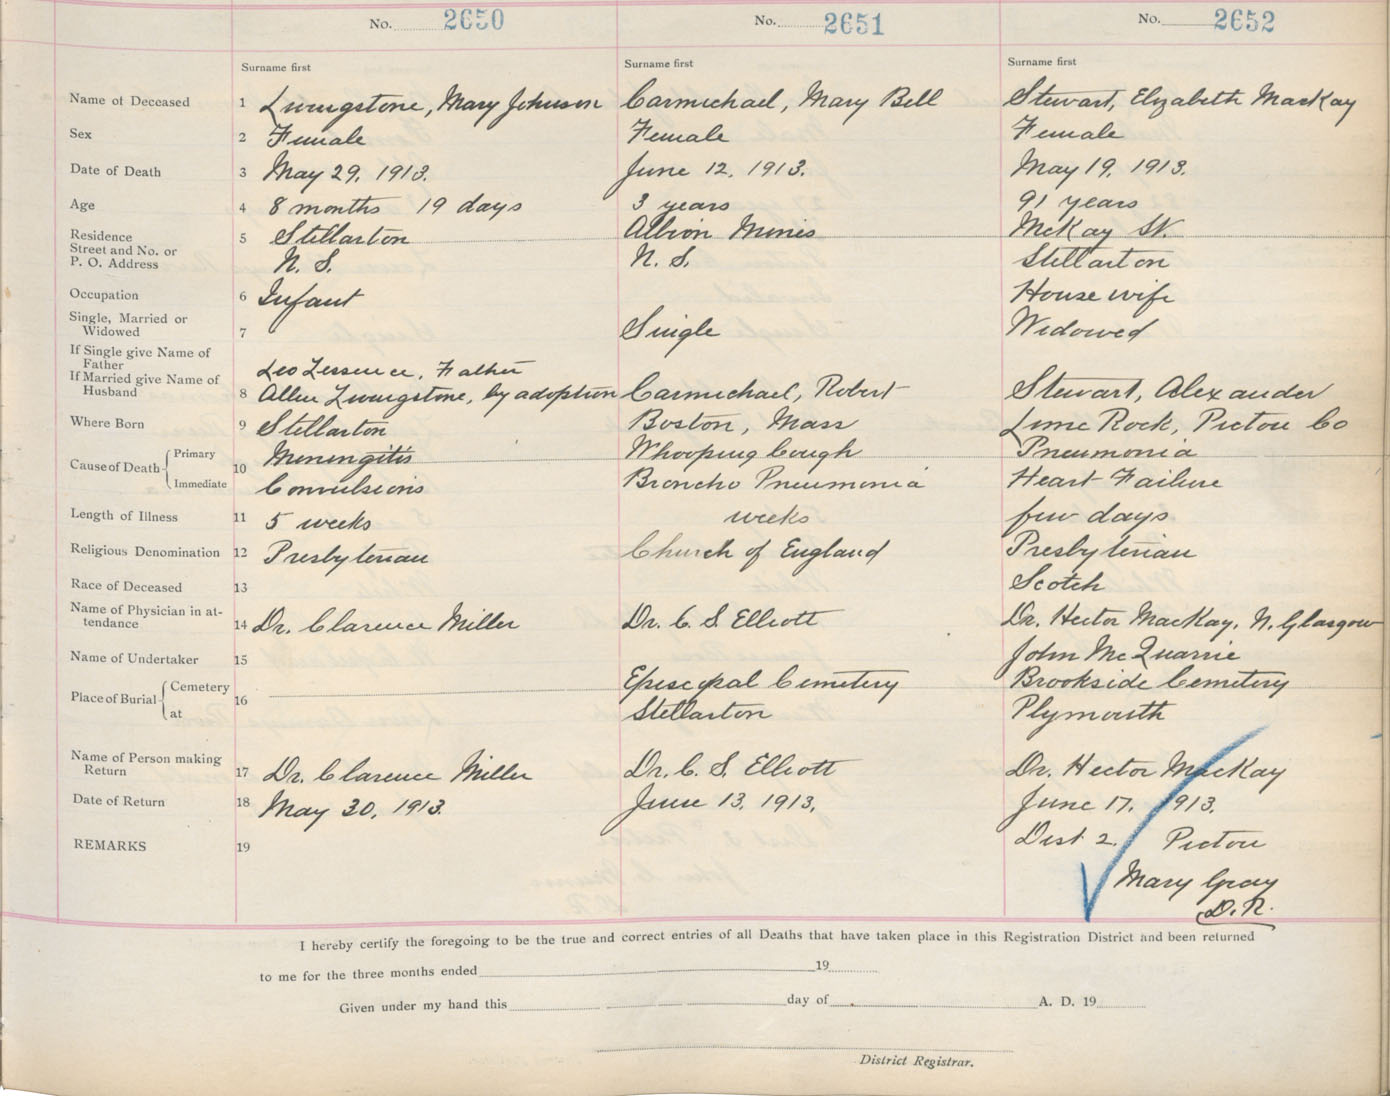 No. 2650 No. 2651 No. 2652
Surname first Surname first Surname first
Name of Deceased 1 Livingstone, Mary Johnson Carmichael, Mary Bell Stewart, Elizabeth MacKay
Sex 2 Female Female Female
Date of Death 3 May 29, 1913. June 12, 1913. May 19, 1913.
Age 4 8 months 19 days 3 years 91 years
Residence 5 Stellarton Albion Mines McKay St.
Street and No. or
P. O. Address N. S. N. S. Stellarton
Occupation 6 Infant House wife
Single, Married or
Widowed 7 Single Widowed
If Single give Name of
Father Leo , Father
If Married give Name of
Husband 8 Allen Livingstone, by adoption Carmichael, Robert Stewart, Alexander
Where Born 9 Stellarton Boston, Mass Lime Rock, Pictou Co
Cause of Death Primary 10 Meningitis Whooping Cough Pneumonia
Immediate Convulsions Broncho Pneumonia Heart Failure
Length of Illness 11 5 weeks weeks few days
Religious Denomination 12 Presbyterian Church of England Presbyterian
Race of Deceased 13 Scotch
Name of Physician in at-
tendance 14 Dr. Clarence Miller Dr. C. S. Elliott Dr. Hector MacKay, N. Glasgow
Name of Undertaker 15 John McQuarrie
Place of Burial Cemetery 16 Episcopal Cemetery Brookside Cemetery
at Stellarton Plymouth
Name of Person making
Return 17 Dr. Clarence Miller Dr. C. S. Elliott Dr. Hector MacKay
Date of Return 18 May 30, 1913. June 13, 1913. June 17, 1913.
REMARKS 19 Dist 2. Pictou
Mary Gray
D. R.
I hereby certify the foregoing to be the true and correct entries of all Deaths that have taken place in this Registration District and been returned
to me for the three months ended 19
Given under my hand this day of A. D. 19
District Registrar.